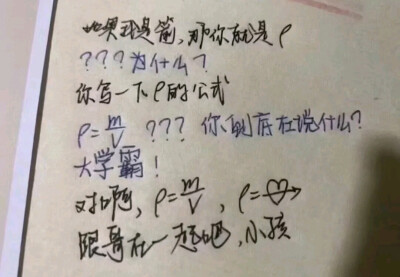 如果我是箭,那你就是ρ
???为什么?
你写一下ρ的公式
ρ=m/V ??? 你到底在说什么?
大学霸!
对啊,ρ=m/V,ρ=♡→
跟哥在一起吧,小孩